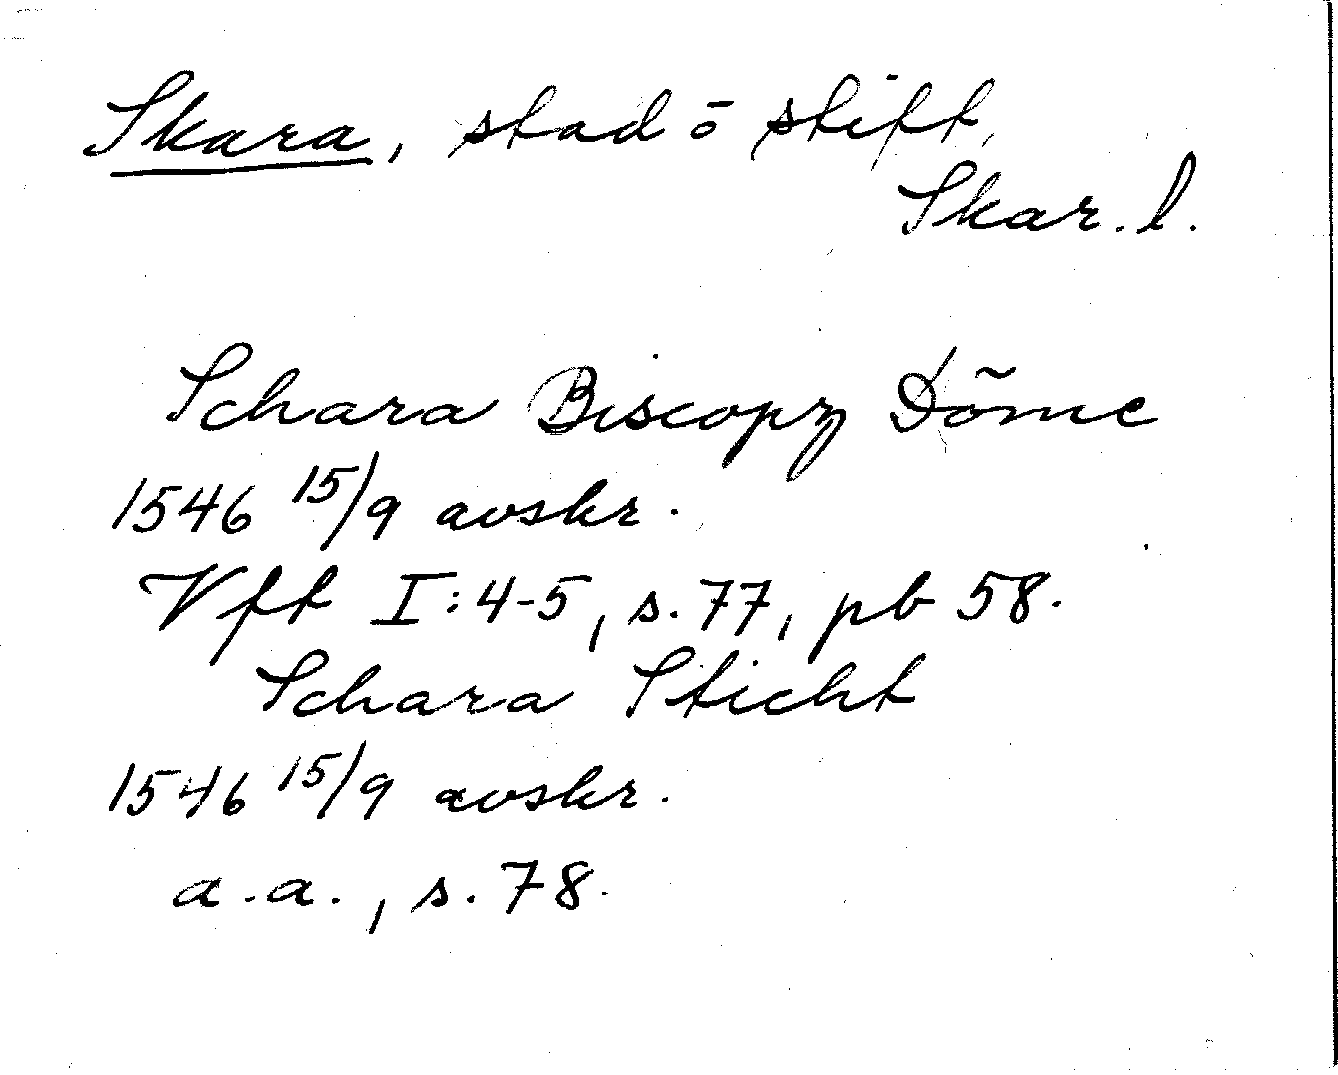 Skara, stad ō stift,
Skar. l.
Schara Biscopz Dōme
1546 15/9 avskr.
Vft I:4-5, s. 77, pb 58.
Schara Sticht
1546 15/9 avskr.
a.a., s. 78.